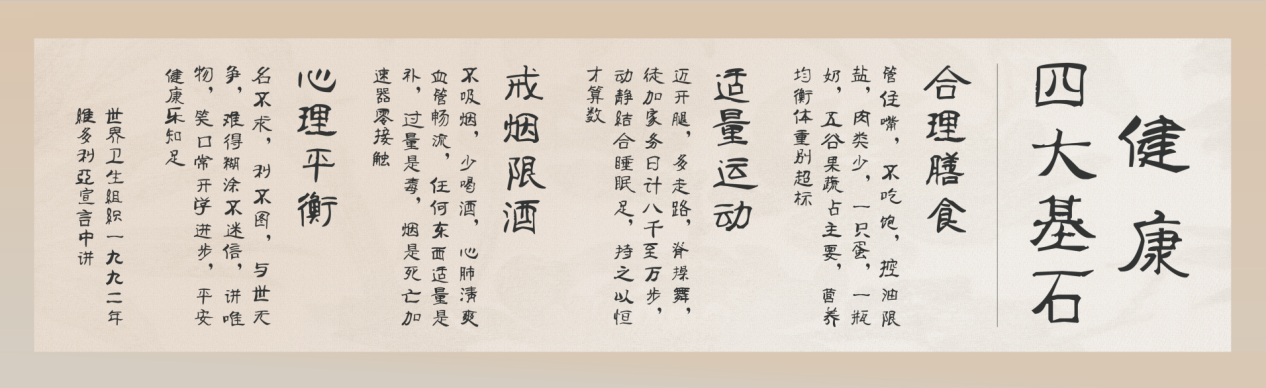 健康
四大基石
合理膳食
管住嘴，不吃饱，控油限
盐，肉类少，一只蛋，一瓶
奶，五谷果蔬占主要，营养
均衡体重别超标
适量运动
迈开腿，多走路，脊操舞，
徒加家务日计八千至万步，
动静结合睡眠足，持之以恒
才算数
戒烟限酒
不吸烟，少喝酒，心肺清爽
血管畅流，任何东西适量是
补，过量是毒，烟是死亡加
速器零接触
心理平衡
名不求，利不图，与世无
争，难得糊涂不迷信，讲唯
物，笑口常开学进步，平安
健康乐知足
世界卫生组织一九九二年
维多利亚宣言中讲